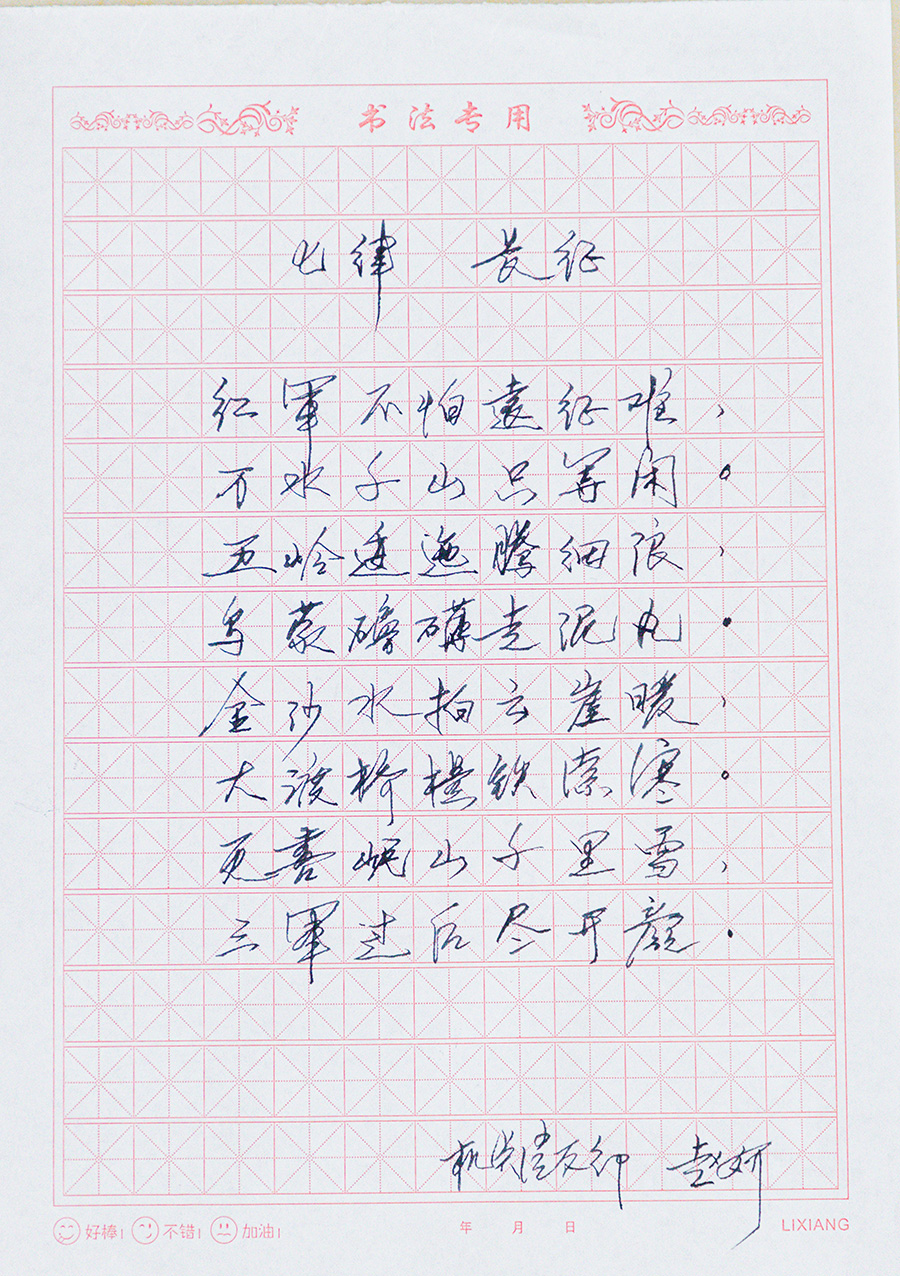 书法专用
七律 长征
红軍不怕遠征难，
万水千山只等闲。
五岭逶迤腾细浪，
乌蒙磅礴走泥丸。
金沙水拍云崖暖，
大渡桥横铁索寒。
更喜岷山千里雪，
三軍过后尽开颜。
机关 赵妍
好棒! 不错! 加油! 年 月 日 LIXIANG